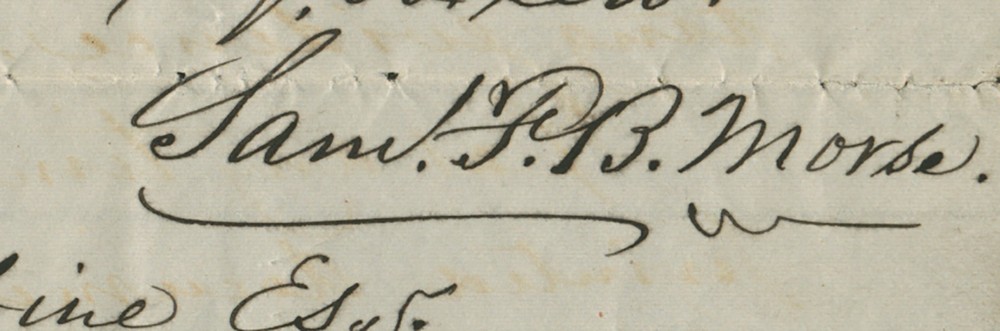 Saml. F. B. Morse.
Esqr.